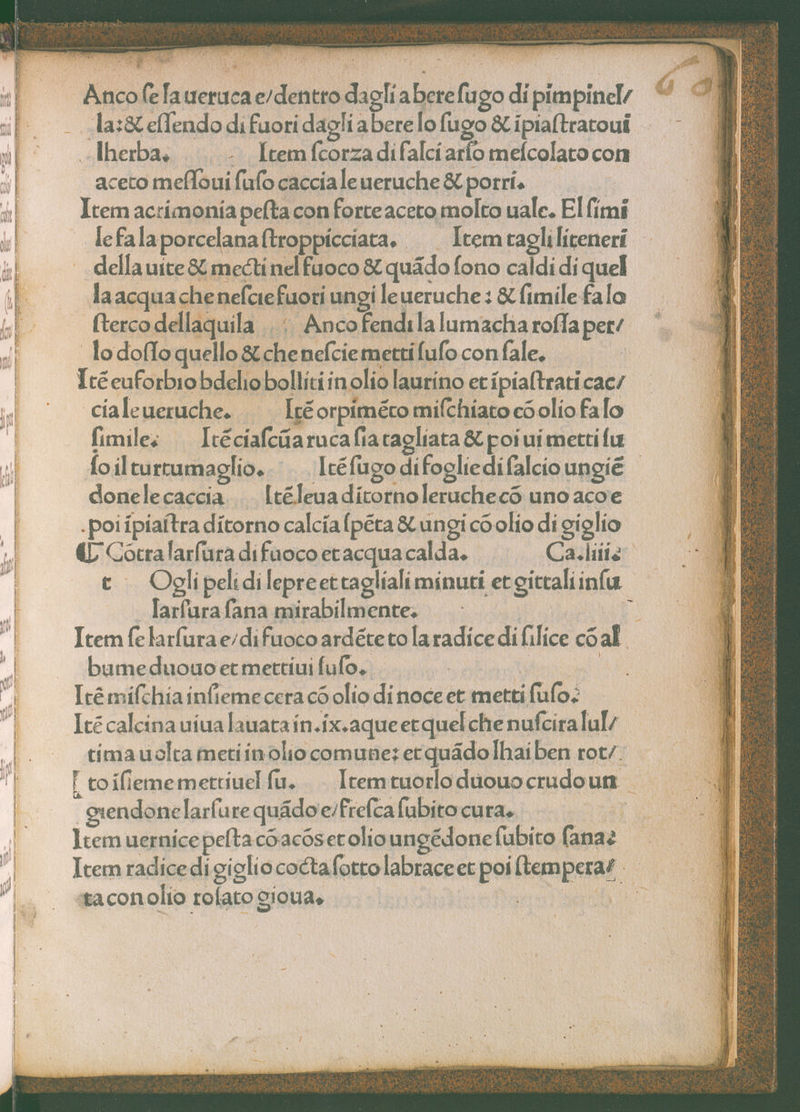 60
Anco ſe la ueruca e/dentro dagli a bere ſugo di pimpinel/
la:& eſſendo di fuori dagli a bere lo ſugo & ipiaſtratoui
lherba. Item ſcorza di ſalci arſo meſcolato con
aceto meſſoui ſuſo caccia le ueruche & porri.
Item acrimonia peſta con forte aceto molto uale. El ſimi
le fa la porcelana ſtroppicciata. Item tagli li teneri
della uite & mecti nel fuoco & quãdo ſono caldi di quel
la acqua che neſcie fuori ungi le ueruche : & ſimile fa lo
ſterco dellaquila : Anco fendi la lumacha roſſa per/
lo doſſo quello & che neſcie metti ſuſo con ſale.
Itẽ euforbio bdelio bolliti in olio laurino et ipiaſtrati cac/
cia le ueruche. Itẽ orpimẽto miſchiato cõ olio fa lo
ſimile. Itẽ ciaſcũa ruca ſia tagliata & poi ui metti ſu
ſo il turtumaglio. Itẽ ſugo di foglie di ſalcio ungiẽ
done le caccia Itẽ leua ditorno leruche cõ uno aco e
.poi ipiaſtra ditorno calcia ſpẽta & ungi cõ olio di giglio
☾ Cõtra larſura di fuoco et acqua calda. Ca.liii.
t Ogli peli di lepre et tagliali minuti et gittali in ſu
larſura ſana mirabilmente.
Item ſe larſura e/di fuoco ardẽte to la radice di filice cõ al
bume duouo et mettiui ſuſo.
Itẽ miſchia inſieme cera cõ olio di noce et metti ſuſo.
Itẽ calcina uiua lauata in .ix.aque et quel che nuſcira lul/
tima uolta meti in olio comune: et quãdo lhai ben rot/
[ to iſieme mettiuel ſu. Item tuorlo duouo crudo un
giendone larſure quãdo e/freſca ſubito cura.
Item uernice peſta cõ acõs et olio ungẽdone ſubito ſana:
Item radice di giglio cocta ſotto la brace et poi ſtempera/
ta con olio roſato gioua.